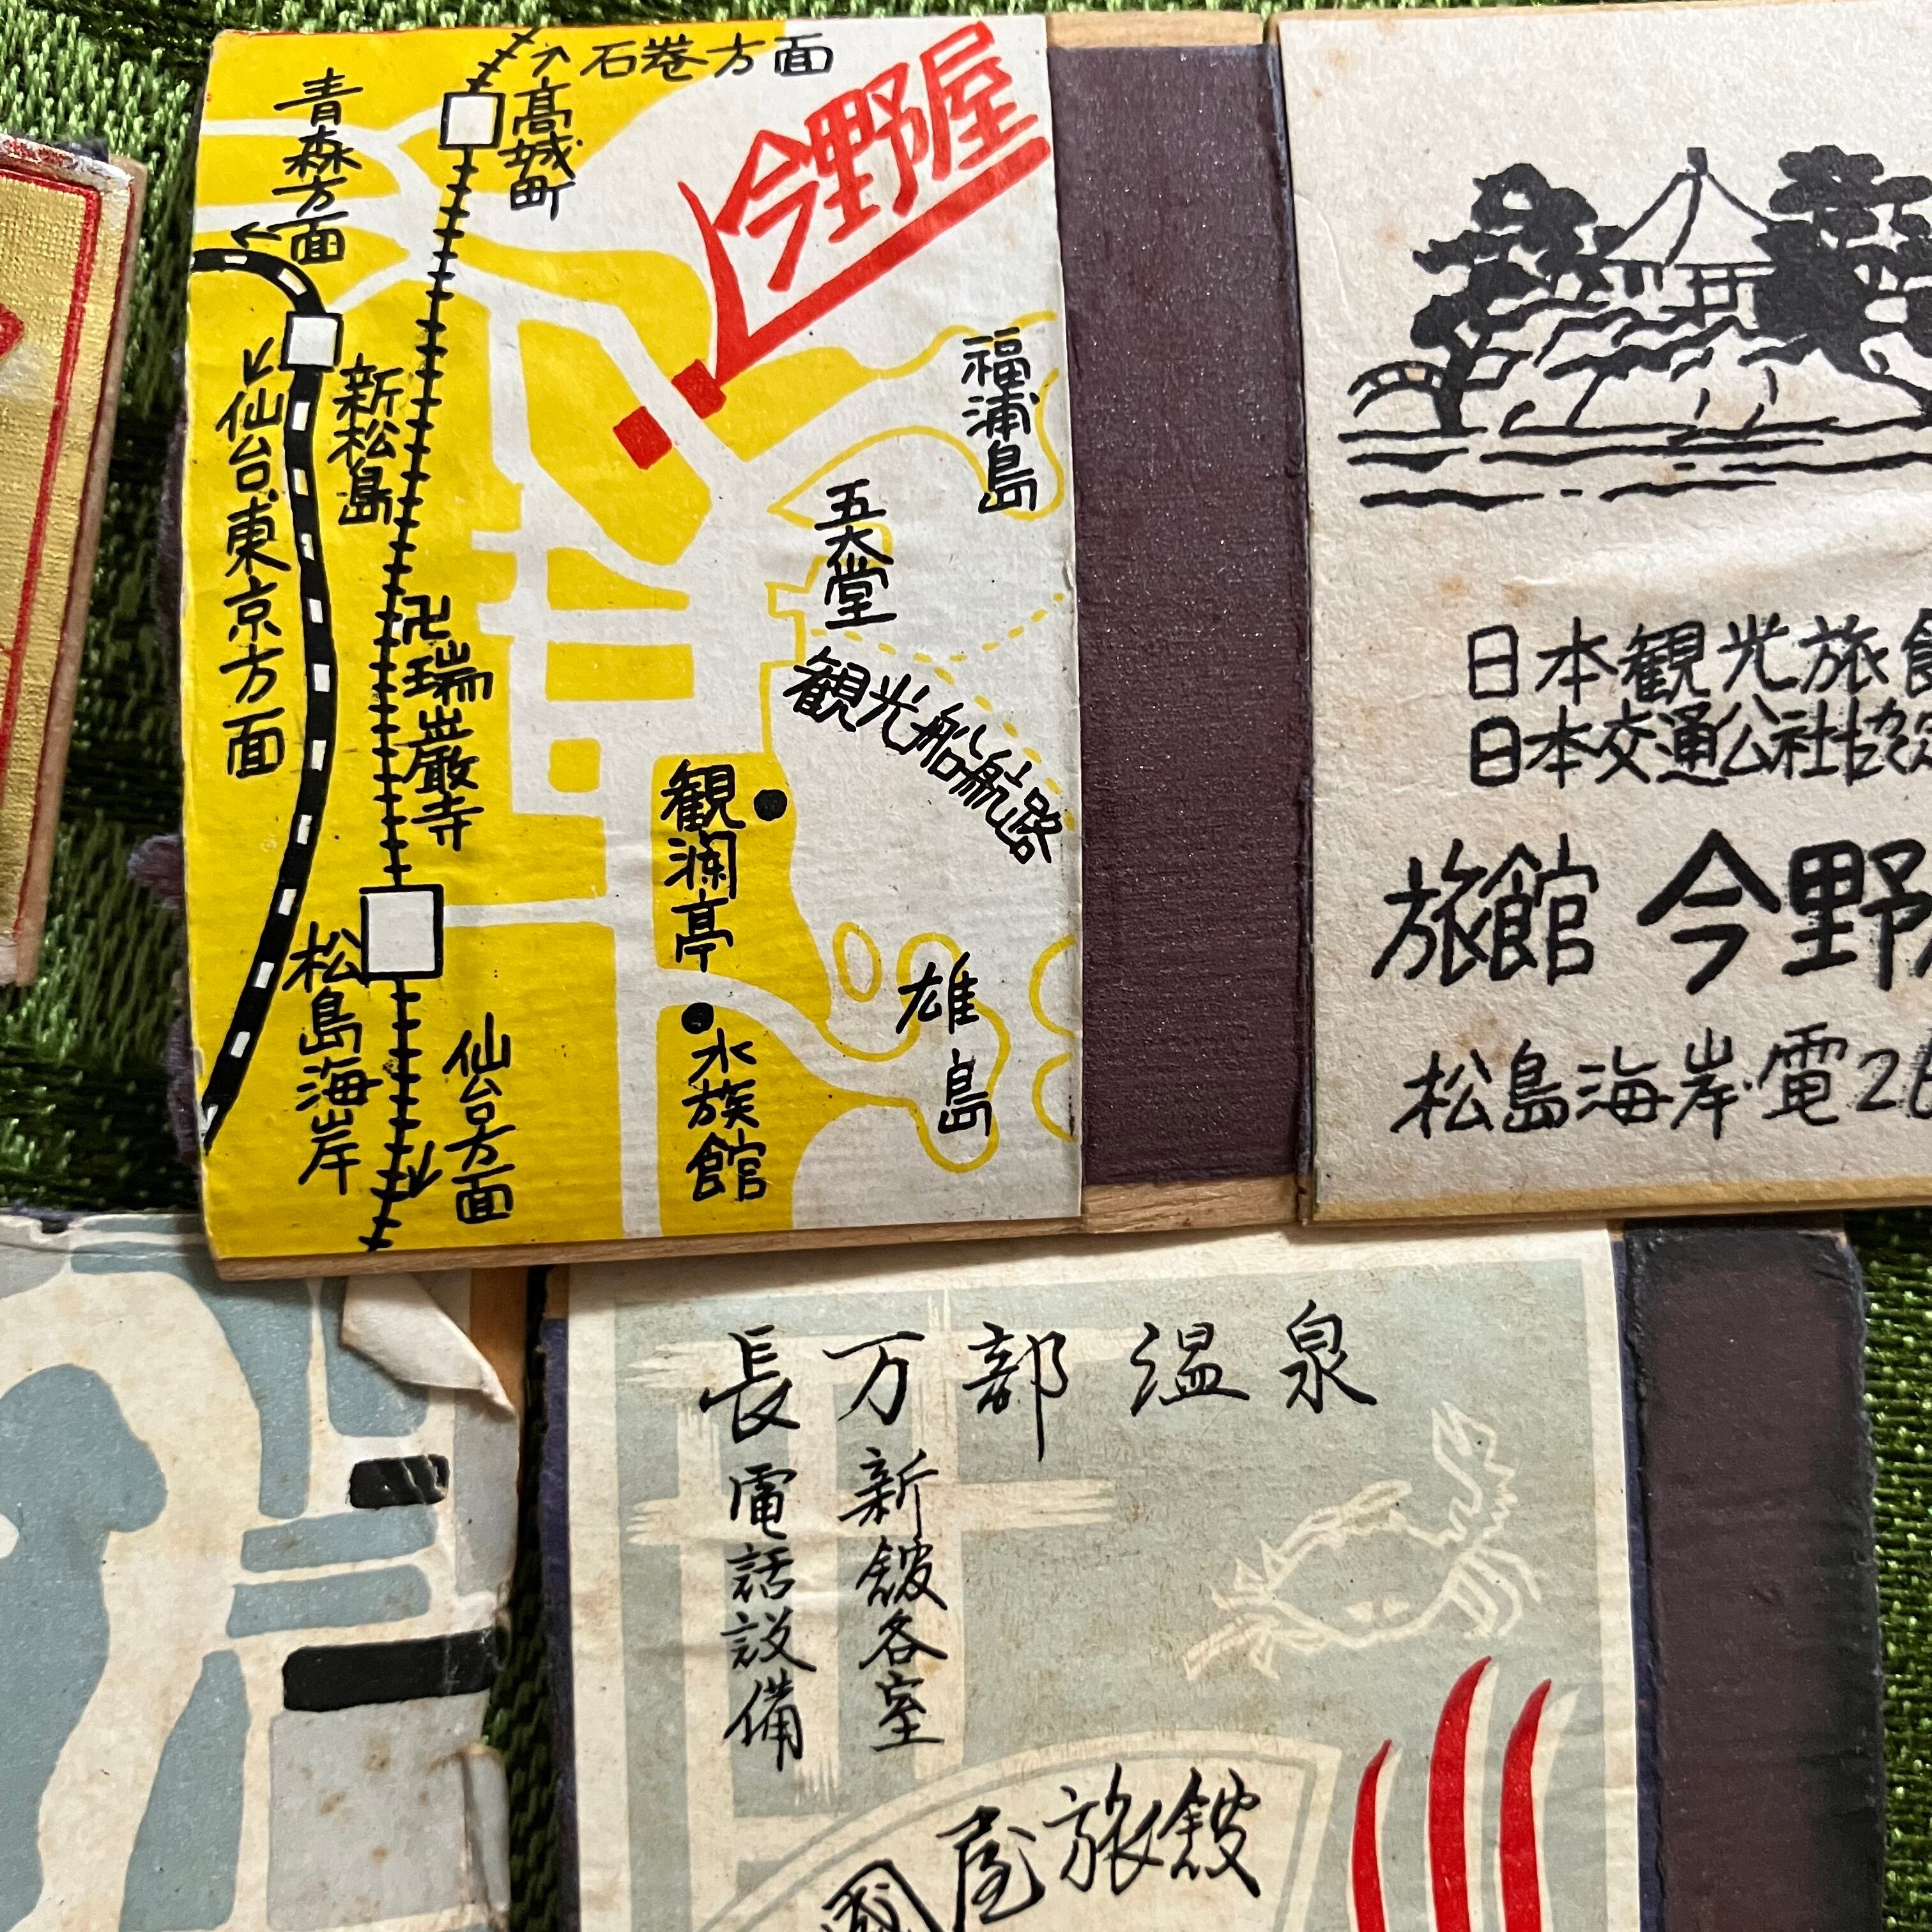 石巻方面
今野屋
高城町
青森方面
新松島
仙台東京方面
卍瑞巌寺
福浦島
五大堂
観光船航路
観瀾亭
雄島
松島海岸
仙台方面
水族館
日本観光旅
日本交通公社協
旅館 今野
松島海岸・電2
長万部温泉
新館各室
電話設備
屋旅館